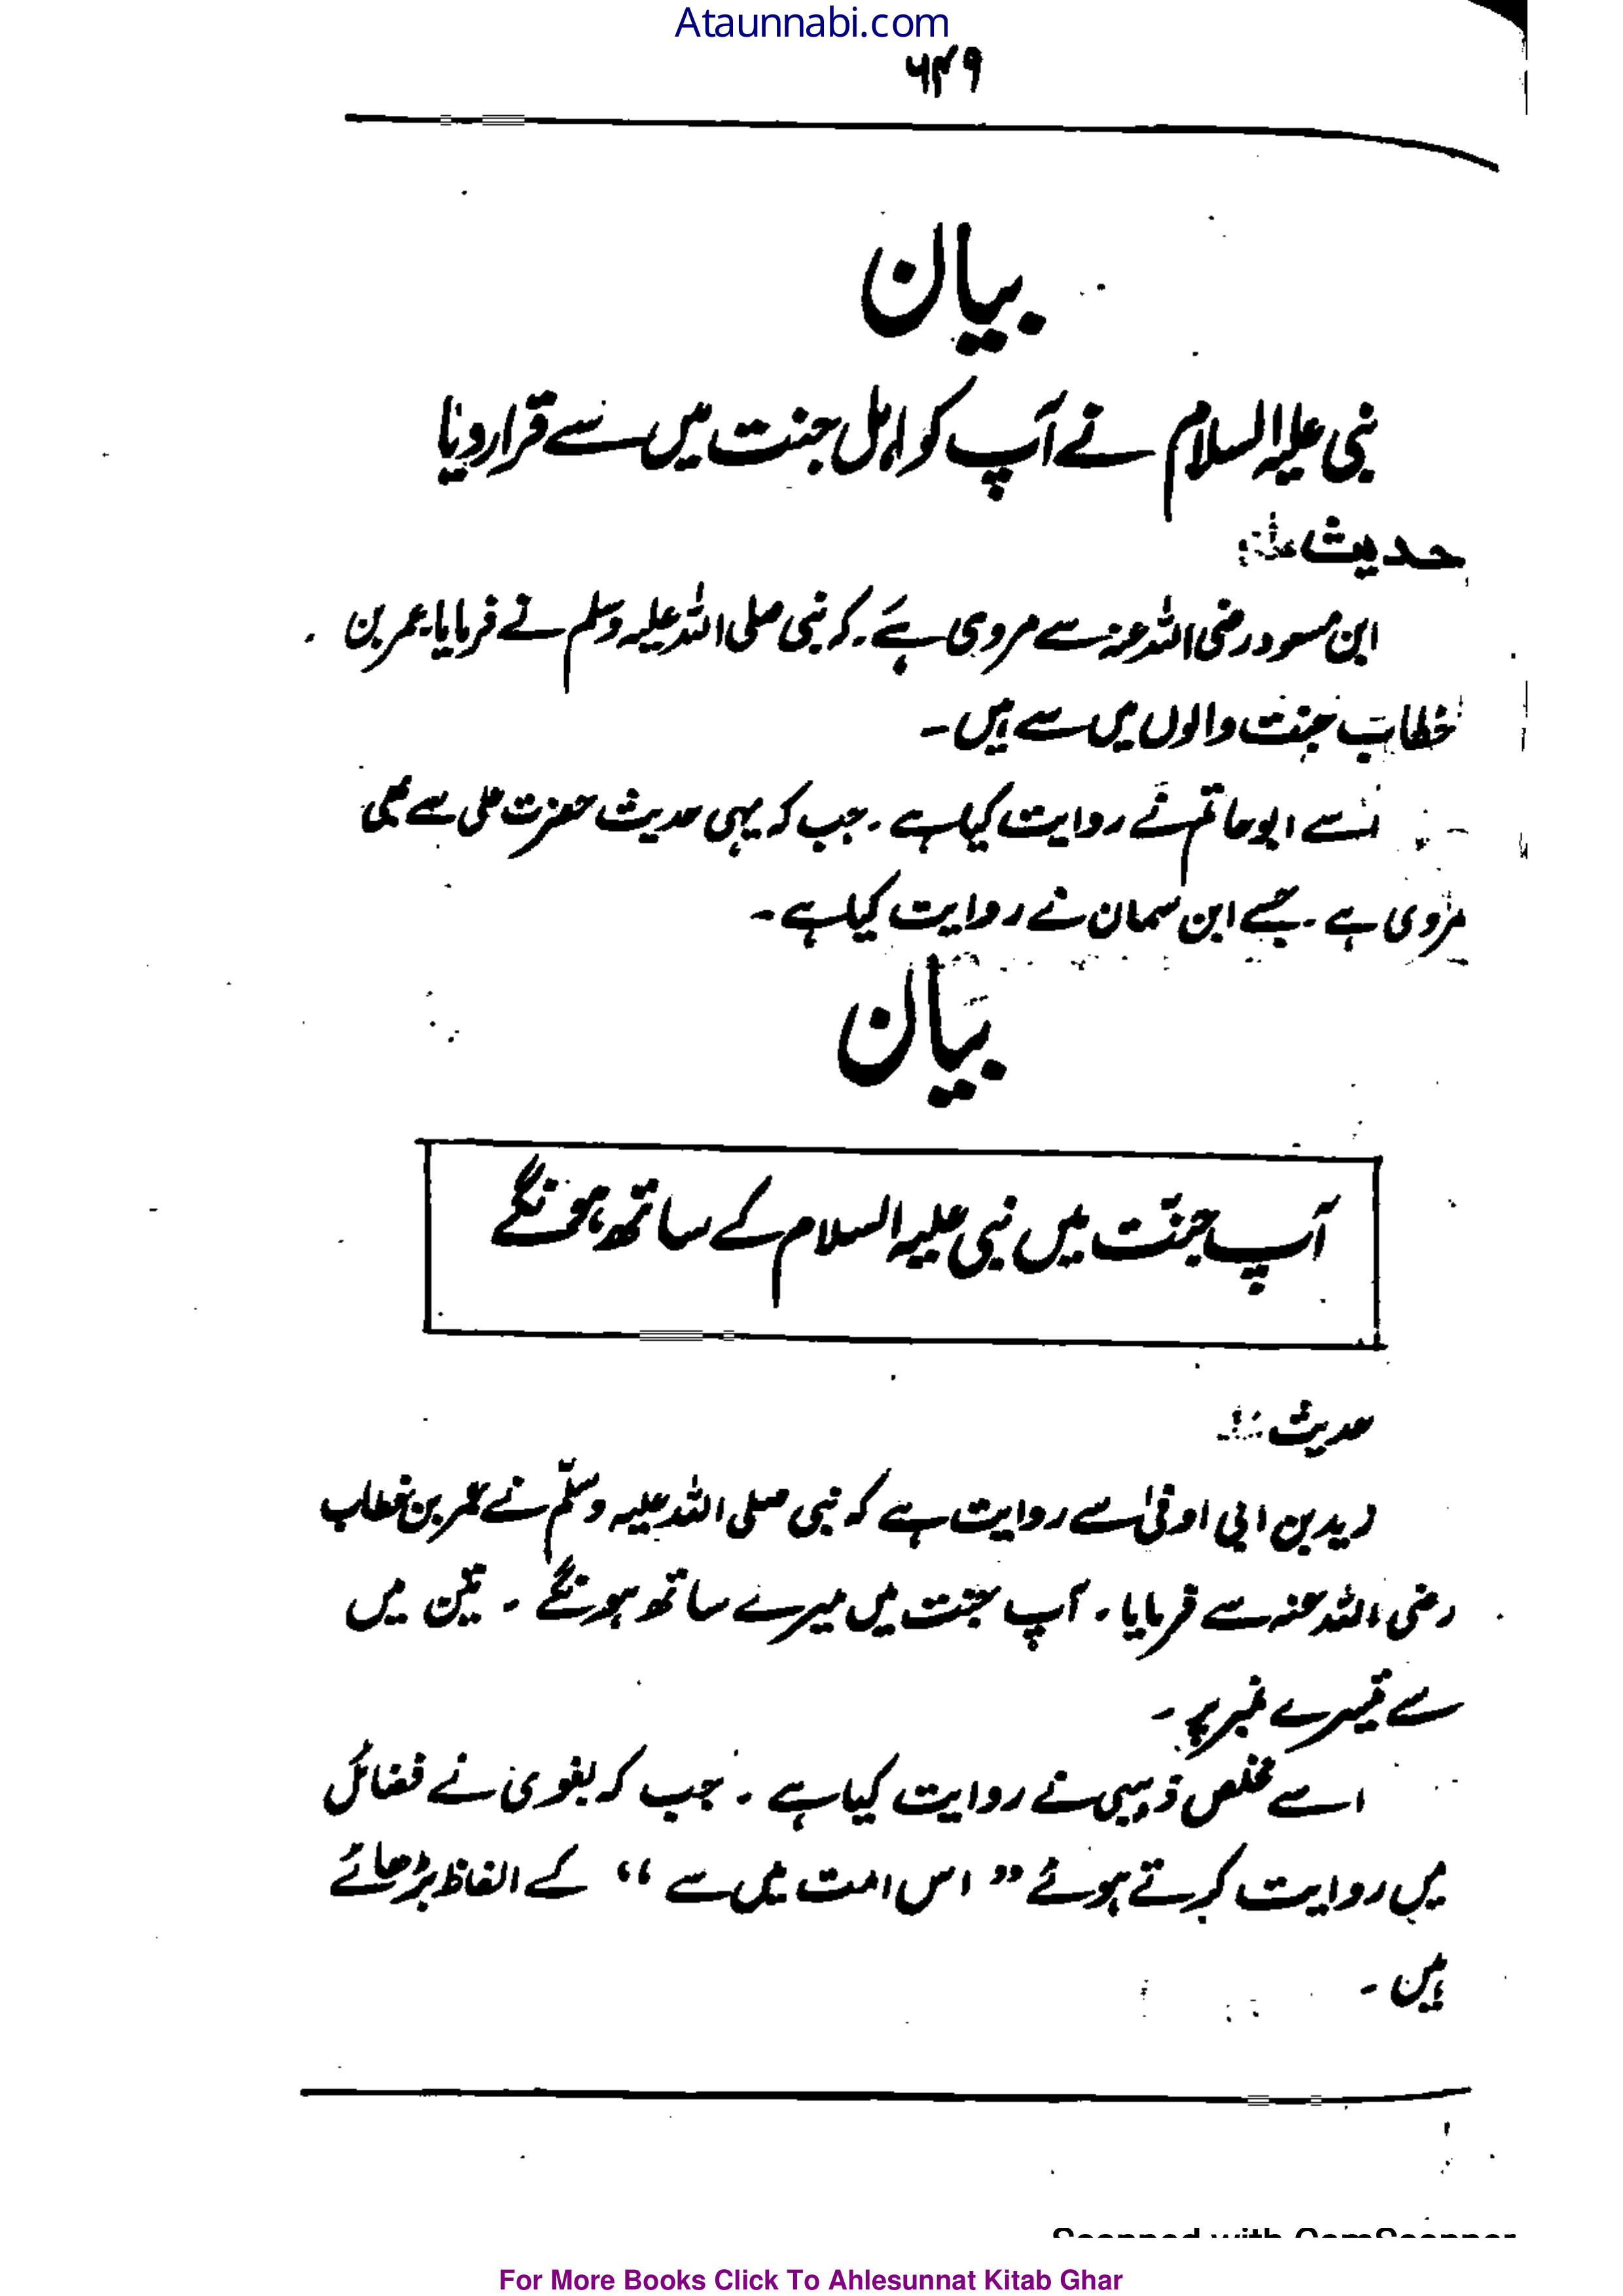 Ataunnabi.com
۶۴۹
بیان
نبی علیہ السلام نے آپ کو اہل جنت میں سے قرار دیا
حدیث
ابن مسعود رضی اللہ عنہ سے مروی ہے۔ کہ نبی صلی اللہ علیہ وسلم نے فرمایا۔ عمر بن
خطاب جنت والوں میں سے ہیں۔
اسے ابوحاتم نے روایت کیا ہے۔ جب کہ یہی حدیث حضرت علی سے بھی
مروی ہے۔ جسے ابن سمان نے روایت کیا ہے۔
بیان
آپ جنت میں نبی علیہ السلام کے ساتھ ہونگے
حدیث
زید بن ابی اوفیٰ سے روایت ہے کہ نبی صلی اللہ علیہ وسلّم نے عمر بن خطاب
رضی اللہ عنہ سے فرمایا۔ آپ جنت میں میرے ساتھ ہونگے۔ تین میں
سے تیسرے نمبر پر۔
اسے مخلص ذہبی نے روایت کیا ہے۔ جب کہ بغوی نے فضائل
میں روایت کرتے ہوئے ”اس امت میں سے“ کے الفاظ بڑھائے
ہیں۔
Scanned with CamScanner
For More Books Click To Ahlesunnat Kitab Ghar